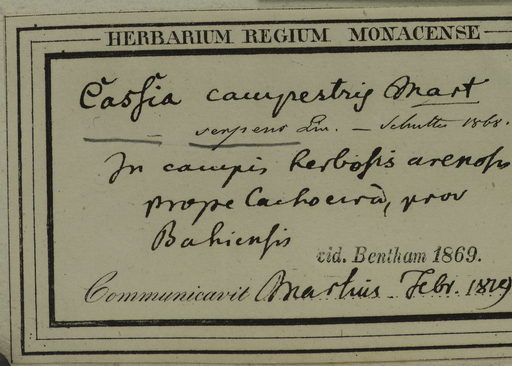 HERBARIUM REGIUM MONACENSE
Cassia campestris Mart
serpens Lin. – 1868.
In campis herbosis arenosis
prope Cachoeira, prov
Bahiensis
vid. Bentham 1869.
Communicavit Martius Febr. 1819